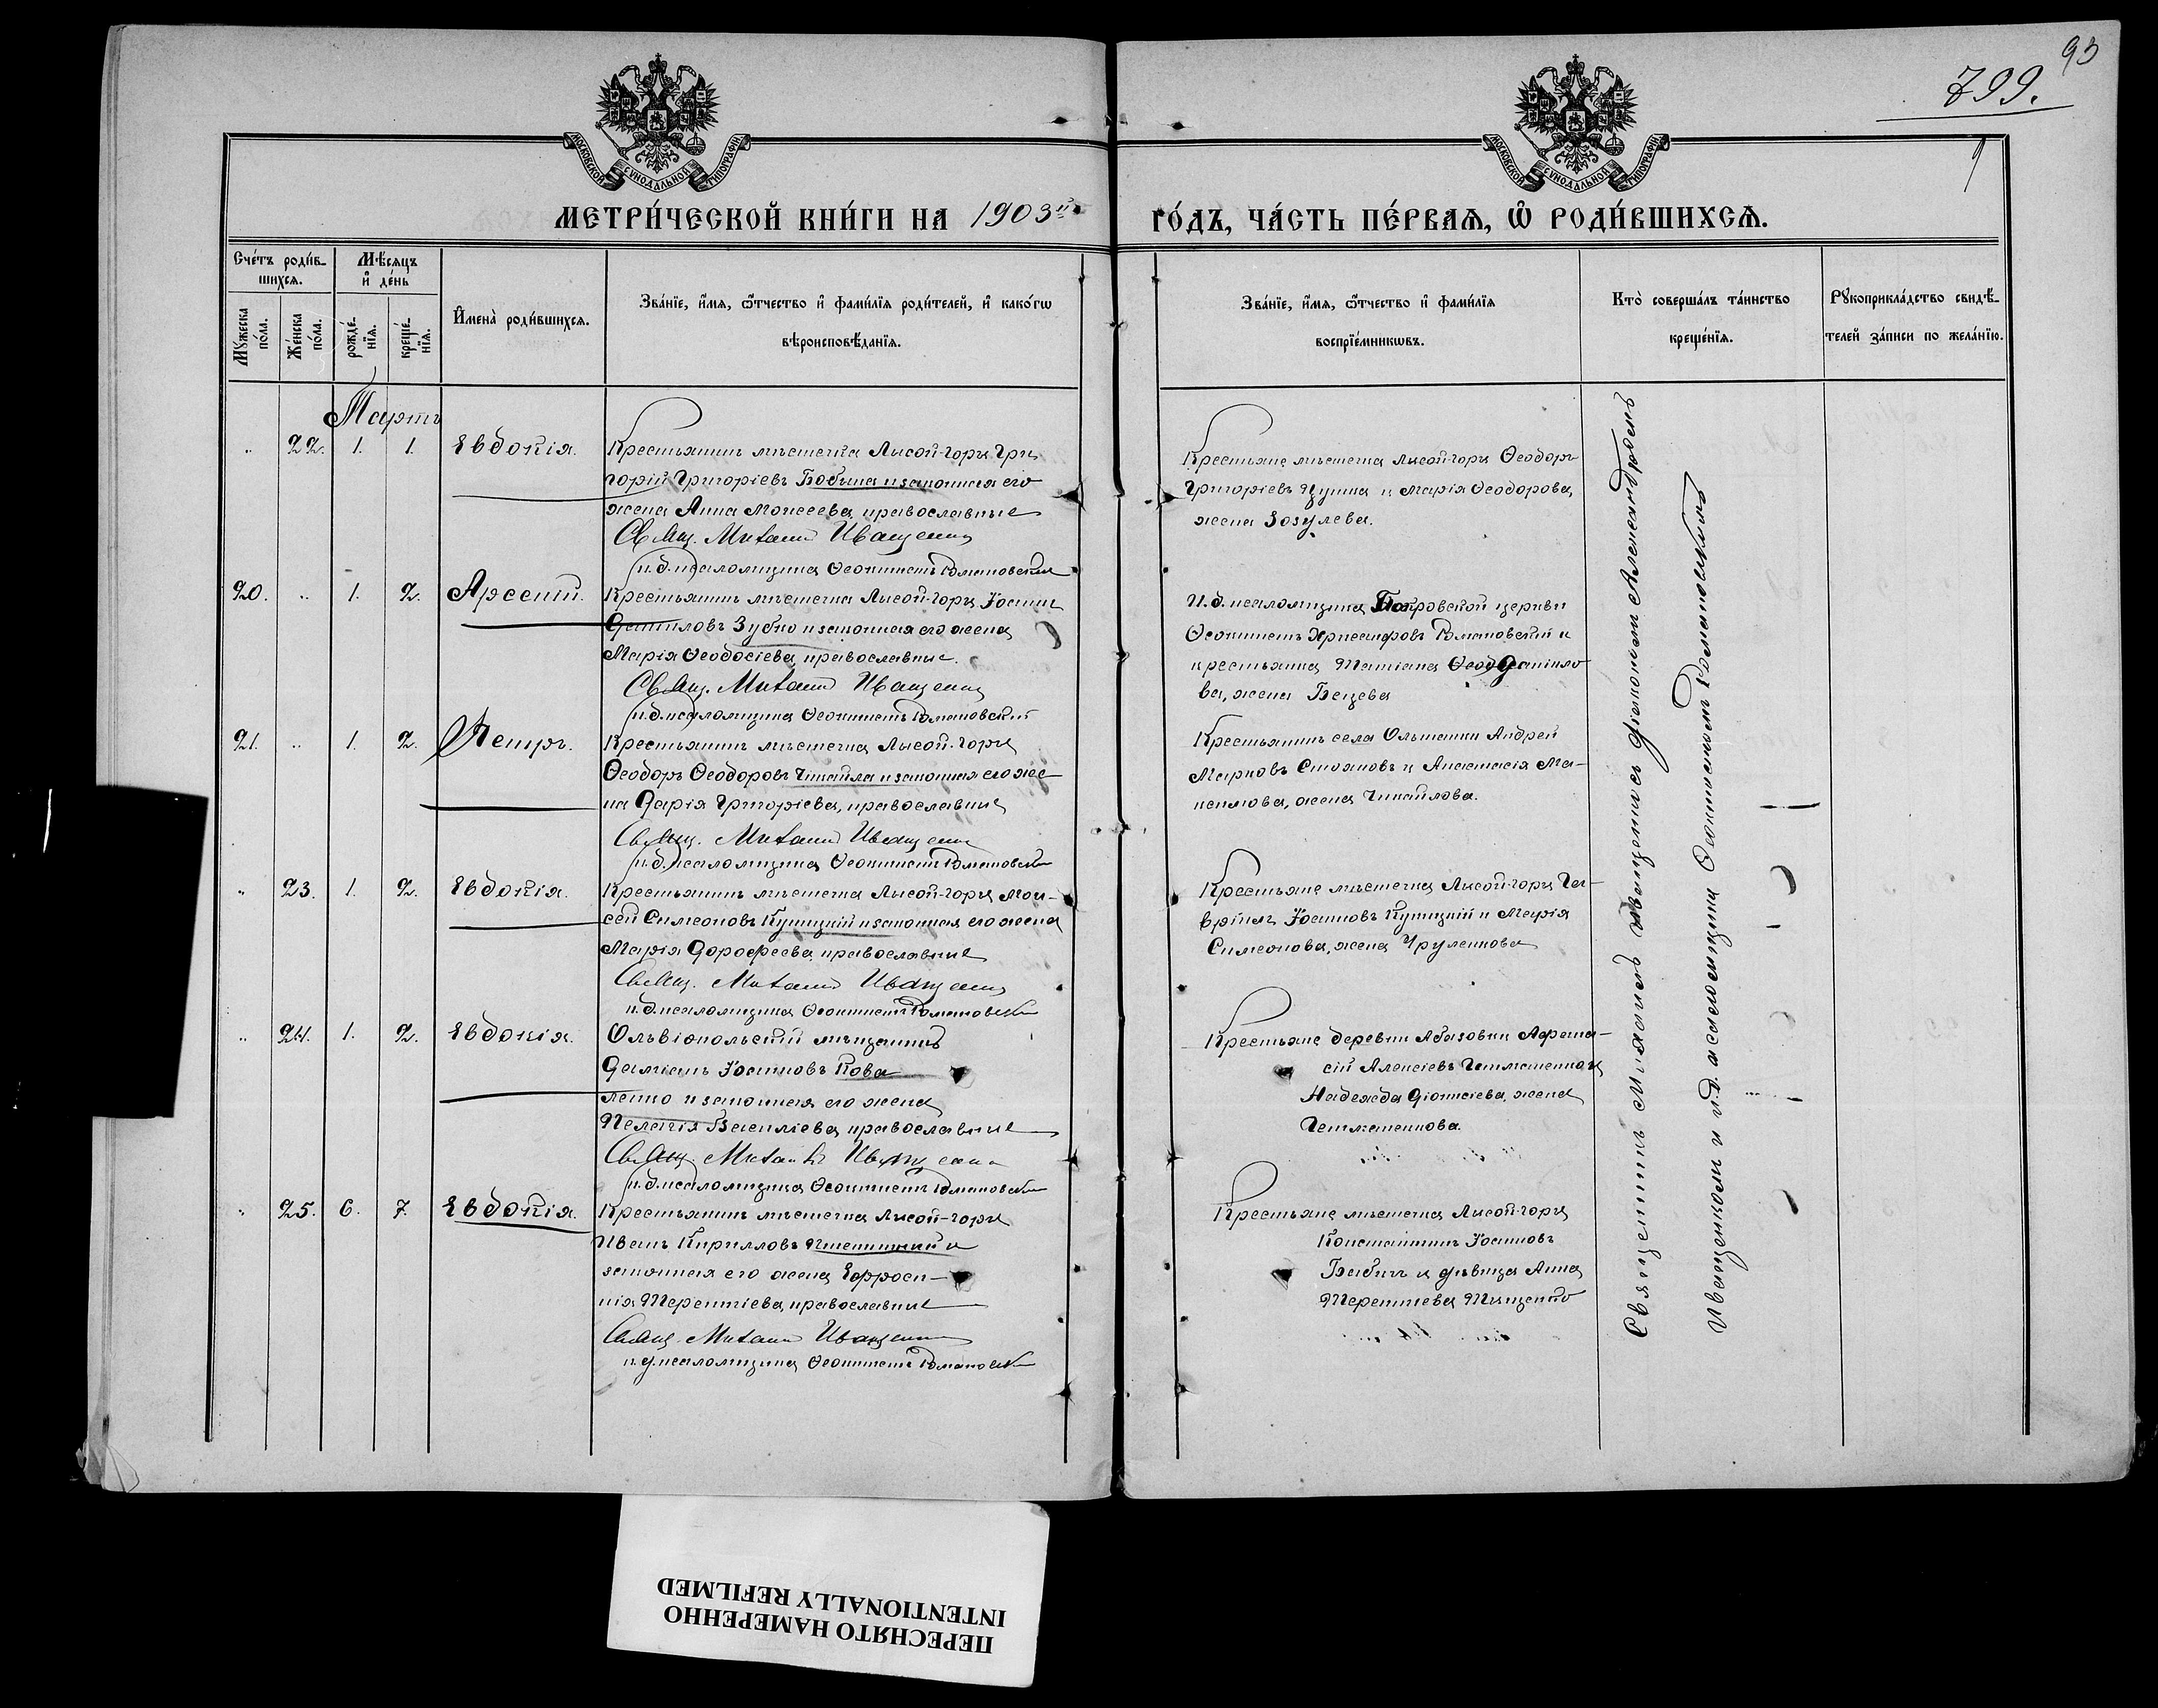 93
799.
МОСКОВСКОЙ СѴНОДАЛЬНОЙ ТИПОГРАФІИ.
МОСКОВСКОЙ СѴНОДАЛЬНОЙ ТИПОГРАФІИ.
МЕТРИ́ЧЕСКОЙ КНИ́ГИ НА 1903й
ГО́ДЪ, ЧА́СТЬ ПЕ́РВАѦ, Ѽ РОДИ́ВШИХСѦ.
Сче́тъ роди́в-
шихсѧ.
Мꙋжеска
по́ла.
Же́нска
по́ла.
Мѣ́сѧцъ
и҆ де́нь
рожде́-
нїѧ.
креще́-
нїѧ.
И҆мена̀ роди́вшихсѧ.
Зва́нїе, и҆́мѧ, ѻ҆́тчество и҆ фами́лїѧ роди́телей, и҆ како́гѡ
вѣроисповѣ́данїѧ.
Зва́нїе, и҆́мѧ, ѻ҆́тчество и҆ фами́лїѧ
воспрїе́мникѡвъ.
Кто̀ соверша́лъ та́инство
креще́нїѧ.
Рꙋкоприкла́дство свидѣ́-
телей за́писи по жела́нїю.
Мартъ
" 22. 1. 1. Евдокія.
Крестьянинъ мѣстечка Лысой-горы Гри
горій Григоріевъ Бабына и законная его
жена Анна Моисеева, православные
Свящ. Михаилъ Иващенко
и.д. псаломщика Ѳеоктистъ Романовскій
Крестьяне мѣстечка Лысой-горы Ѳеодоръ
Григорьевъ Цупка и Марія Ѳеодорова,
жена Зозулева.
20. " 1. 2. Арсеній.
Крестьянинъ мѣстечка Лысой-горы Іоаннъ
Даниловъ Зубко и законная его жена
Марія Ѳеодосіева, православные.
Свящ. Михаилъ Иващенко
и.д. псаломщика Ѳеоктистъ Романовскій
И.д. псаломщика Покровской церкви
Ѳеоктистъ Хрисанфовъ Романовскій и
крестьянка Татіана Данило
ва, жена Бецева
21. " 1. 2. Петръ.
Крестьянинъ мѣстечка Лысой-горы
Ѳеодоръ Ѳеодоровъ Чикайла и законная его же-
на Дарія Григоріева, православные
Свящ. Михаилъ Иващенко
и.д. псаломщика Ѳеоктистъ Романовскій
Крестьянинъ села Ольшанки Андрей
Марковъ Стояновъ и Анастасія Ма-
ксимова, жена Чикайлова.
" 23. 1. 2. Евдокія.
Крестьянинъ мѣстечка Лысой-горы Мои-
сей Симеоновъ Купицкій и законная его жена
Марія Дорофеева, православные
Свящ. Михаилъ Иващенко
и.д. псаломщика Ѳеоктистъ Романовскій
Крестьяне мѣстечка Лысой-горы Га-
вріилъ Іоанновъ Купицкій и Марія
Симеонова, жена Цруленкова
" 24. 1. 2. Евдокія.
Ольвіопольскій мѣщанинъ
Даміанъ Іоанновъ Кова
ленко и законная его жена
Пелагія Василіева, православные
Свящ. Михаилъ Иващенко
и.д. псаломщика Ѳеоктистъ Романовскій
Крестьяне деревни Абазовки Афана-
сій Алексіевъ Гетманенко и
Надежда Діонисіева, жена
Гетманенкова.
" 25. 6. 7. Евдокія.
Крестьянинъ мѣстечка Лысой-горы
Иванъ Кирилловъ Пшеничный и
законная его жена Евфроси-
нія Терентіева, православные
Свящ. Михаилъ Иващенко
и.д. псаломщика Ѳеоктистъ Романовскій
Крестьяне мѣстечка Лысой-горы
Константинъ Іоанновъ
Бабичъ и дѣвица Анна
Терентіева Тищенко
Священникъ Михаилъ Иващенко съ діакономъ Александромъ
Иващенкомъ и и.д. псаломщика Ѳеоктистомъ Романовскимъ
ПЕРЕСНЯТО НАМЕРЕННО
INTENTIONALLY REFILMED